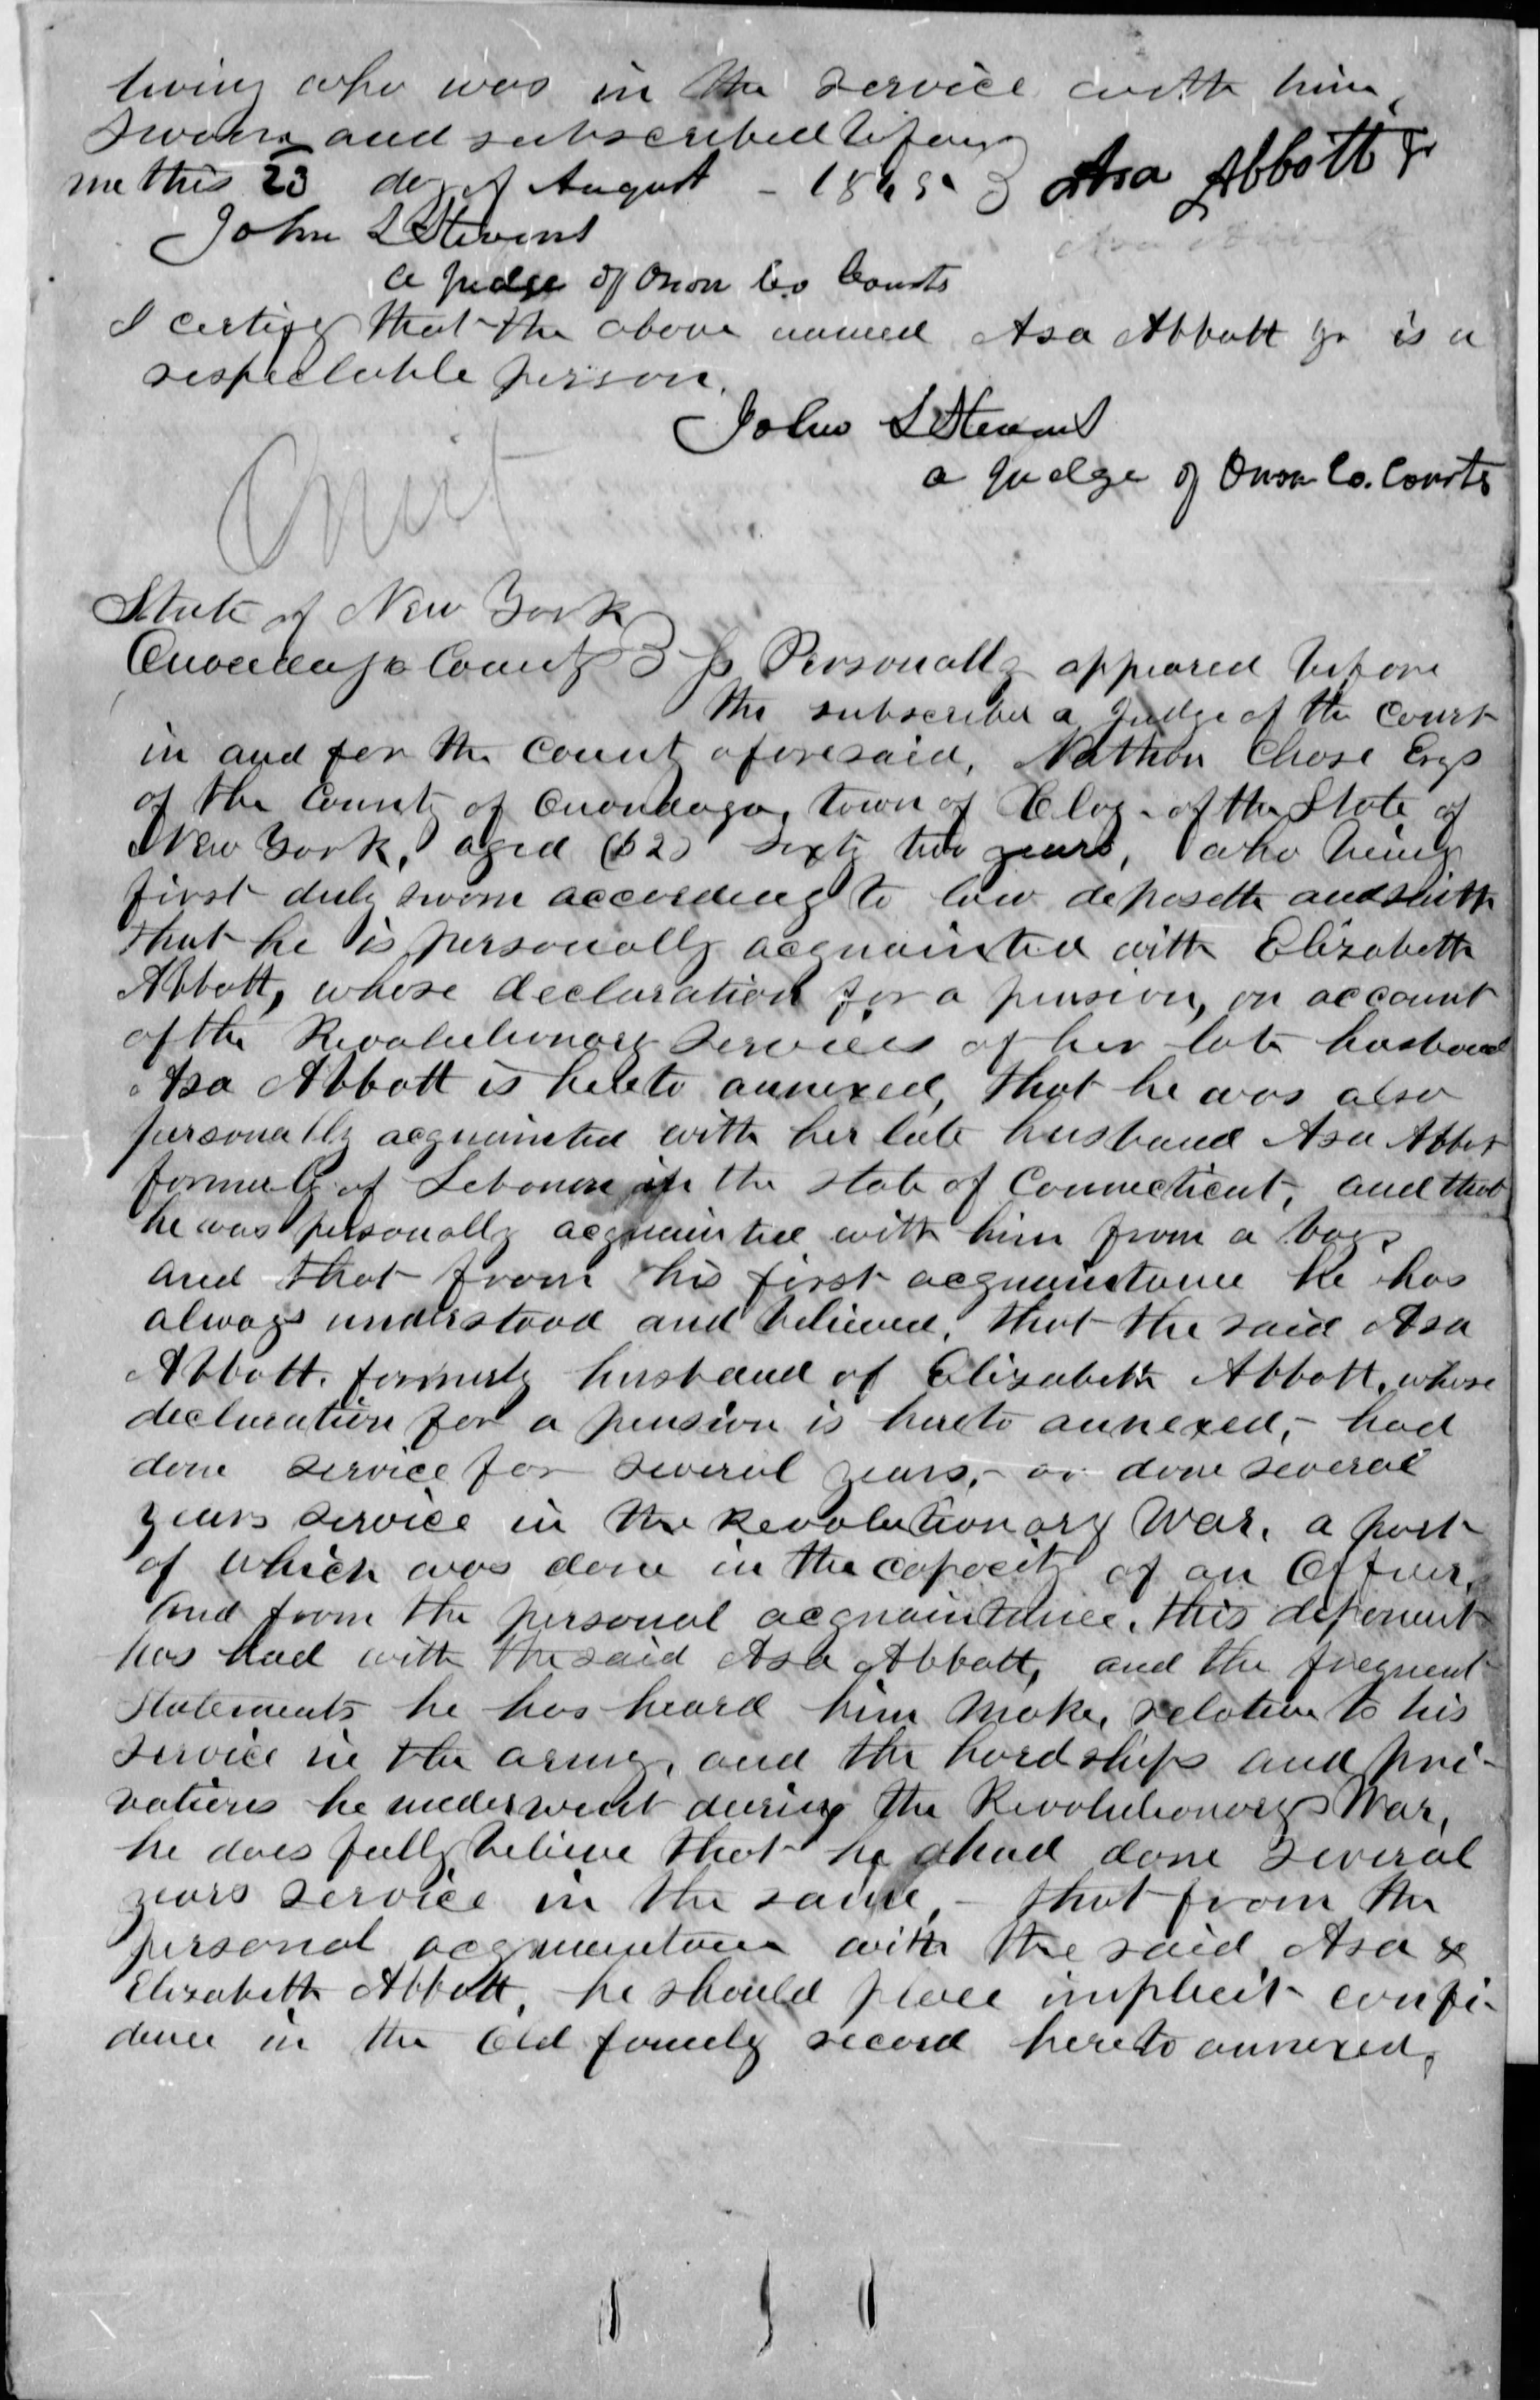 living who was in the service with him,
Sworn and subscribed before
me this 23 day of August - 1845 } Asa Abbott Jr
John L Stevens
a judge of Onon Co Courts
I certify that the above named Asa Abbott Jr is a
respectable person.
John L Stevens
a judge of Onon Co. Courts
State of New York
Onondaga County } ss Personally appeared before
the subscriber a Judge of the Court
in and for the County aforesaid, Nathan Chase Esqr
of the County of Onondaga, town of Clay - of the State of
New York, aged (62) sixty two years, who being
first duly sworn according to law deposeth and saith
that he is personally acquainted with Elizabeth
Abbott, whose declaration for a pension, on account
of the Revolutionary services of her late husband
Asa Abbott is hereto annexed, that he was also
personally acquainted with her late husband Asa Abbot
formerly of Lebonon in the state of Connecticut, and that
he was personally acquainted with him from a boy,
and that from his first acquaintance he has
always understood and believed, that the said Asa
Abbott, formerly husband of Elizabeth Abbott, whose
declaration for a pension is hereto annexed, - had
done service for several years, - or done several
years service in the Revolutionary War, a part
of which was done in the capacity of an Officer,
and from the personal acquaintance, this deponent
has had with the said Asa Abbott, and the frequent
statements he has heard him make, relative to his
service in the army, and the hardships and pri-
vations he underwent during the Revolutionary War,
he does fully believe that he had done several
years service in the same, - that from the
personal acquaintance with the said Asa &
Elizabeth Abbott, he should place implicit confi-
dence in the old family record hereto annexed,